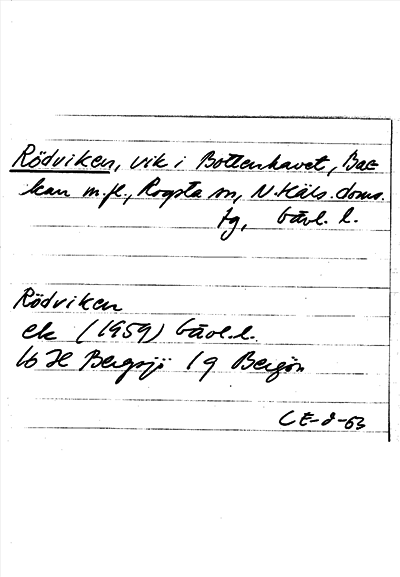 Rödviken, vik i Bottenhavet, Bac-
kan m.fl., Rogsta sn, N.Häls. doms.
tg, Gävl. l.
Rödviken
ek (1959) Gävl. l.
16 H Bergsjö 19 Bergön
CE-d-63